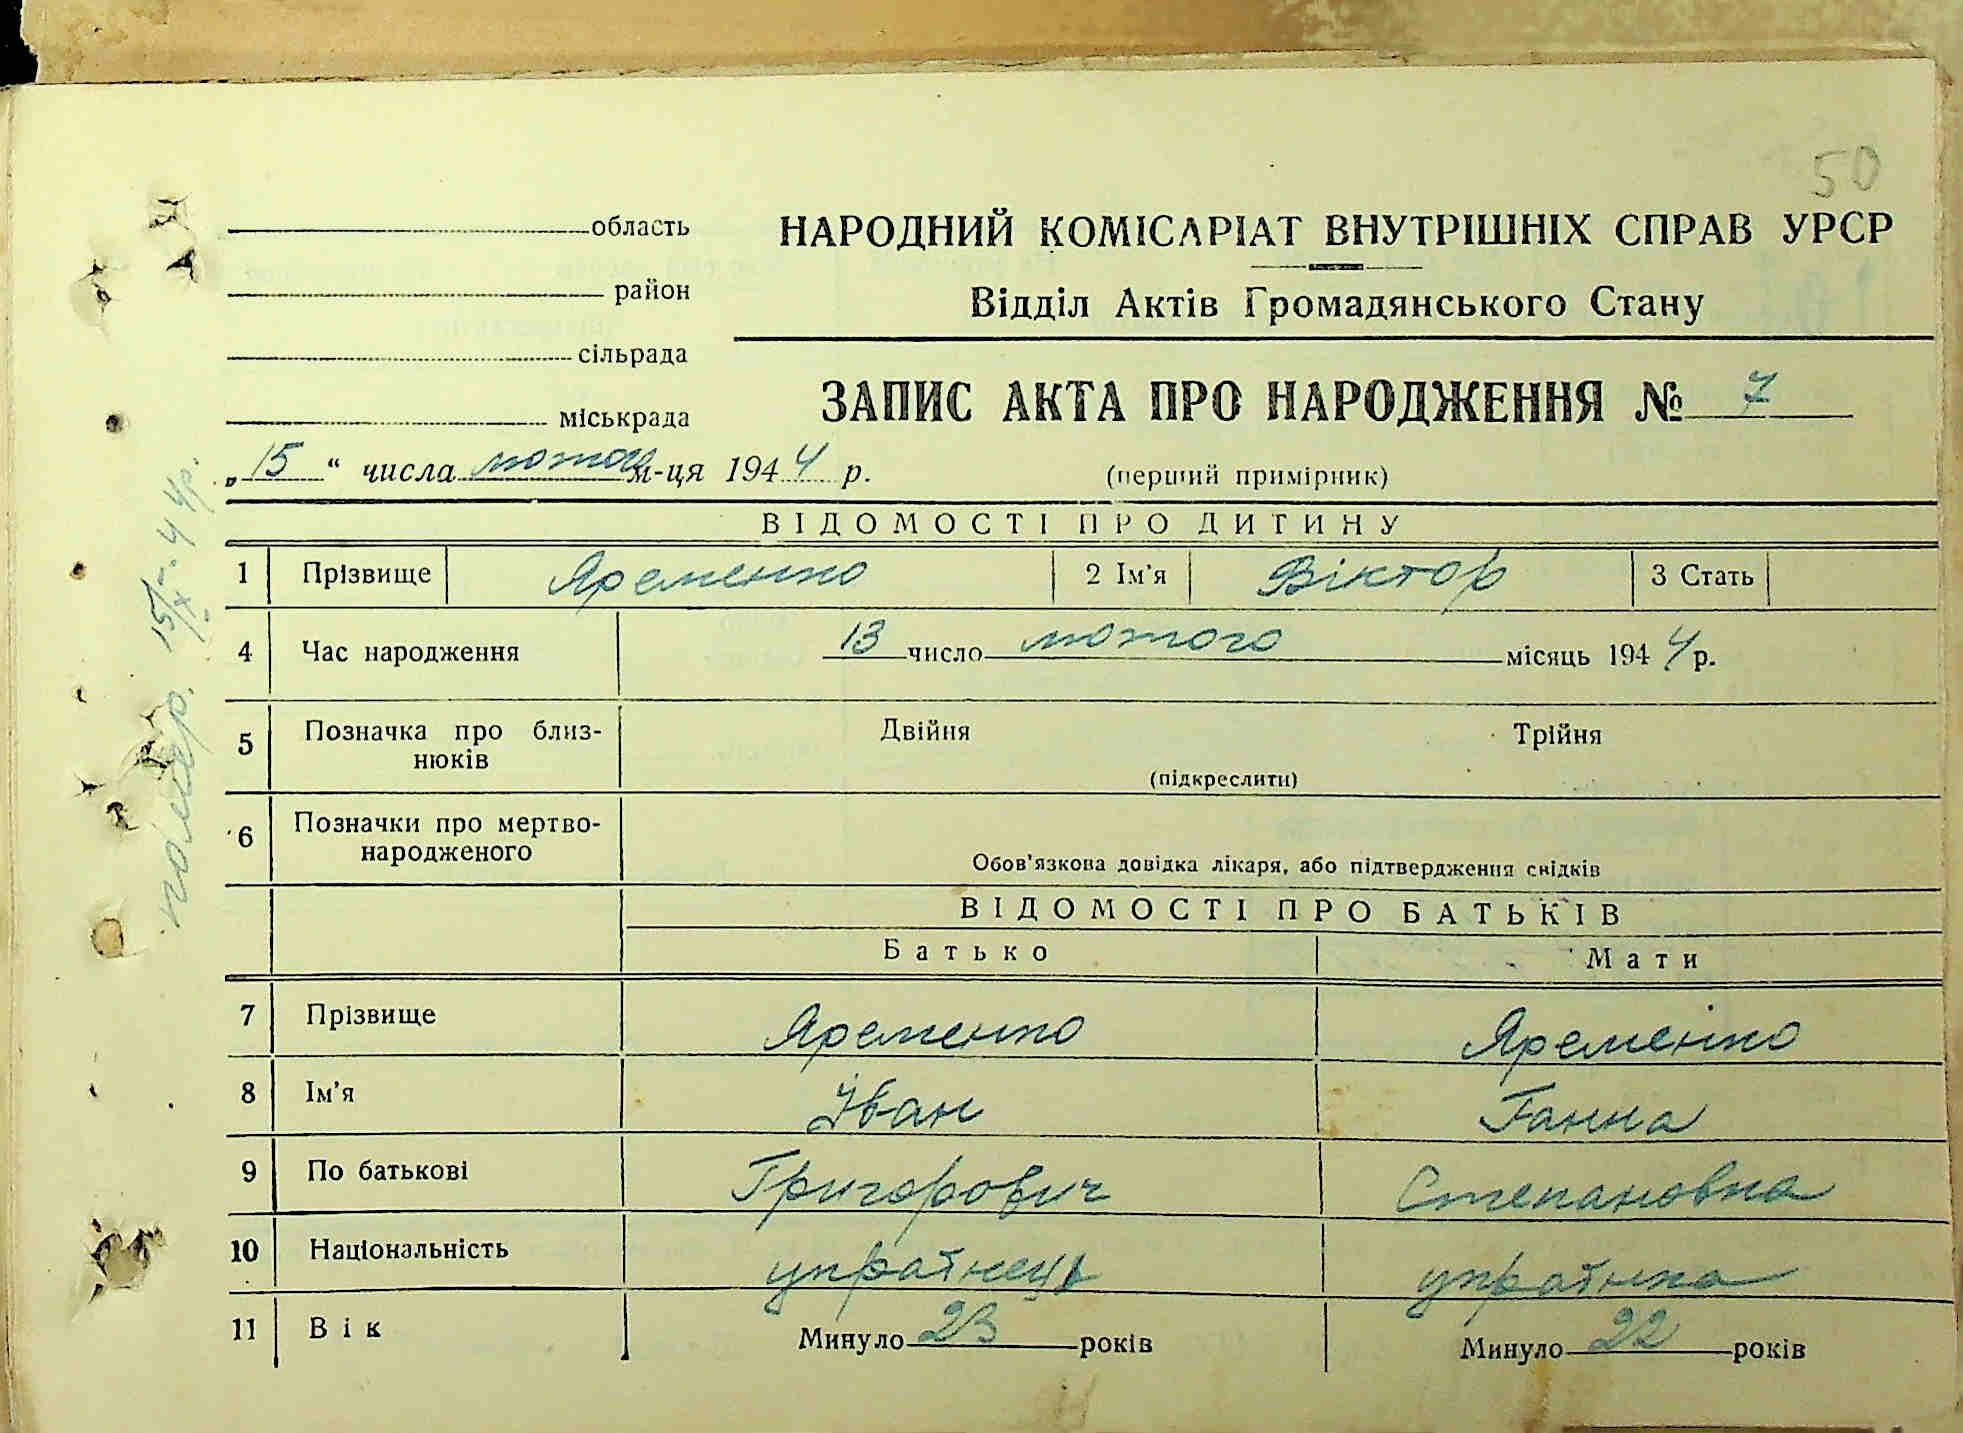 50
область
НАРОДНИЙ КОМІСАРІАТ ВНУТРІШНІХ СПРАВ УРСР
район
Відділ Актів Громадянського Стану
сільрада
ЗАПИС АКТА ПРО НАРОДЖЕННЯ № 7
міськрада
„15“ числа лютого м-ця 1944 р.
(перший примірник)
ВІДОМОСТІ ПРО ДИТИНУ
1 Прізвище Яременко 2 Ім'я Віктор 3 Стать
4 Час народження 13 число лютого місяць 1944 р.
5 Позначка про близ-
нюків
Двійня Трійня
(підкреслити)
6 Позначки про мертво-
народженого
Обов'язкова довідка лікаря, або підтвердження свідків
ВІДОМОСТІ ПРО БАТЬКІВ
Батько Мати
7 Прізвище Яременко Яременко
8 Ім'я Іван Ганна
9 По батькові Григорович Степановна
10 Національність українець українка
11 Вік Минуло 23 років Минуло 22 років
помер. 15/X-44р.